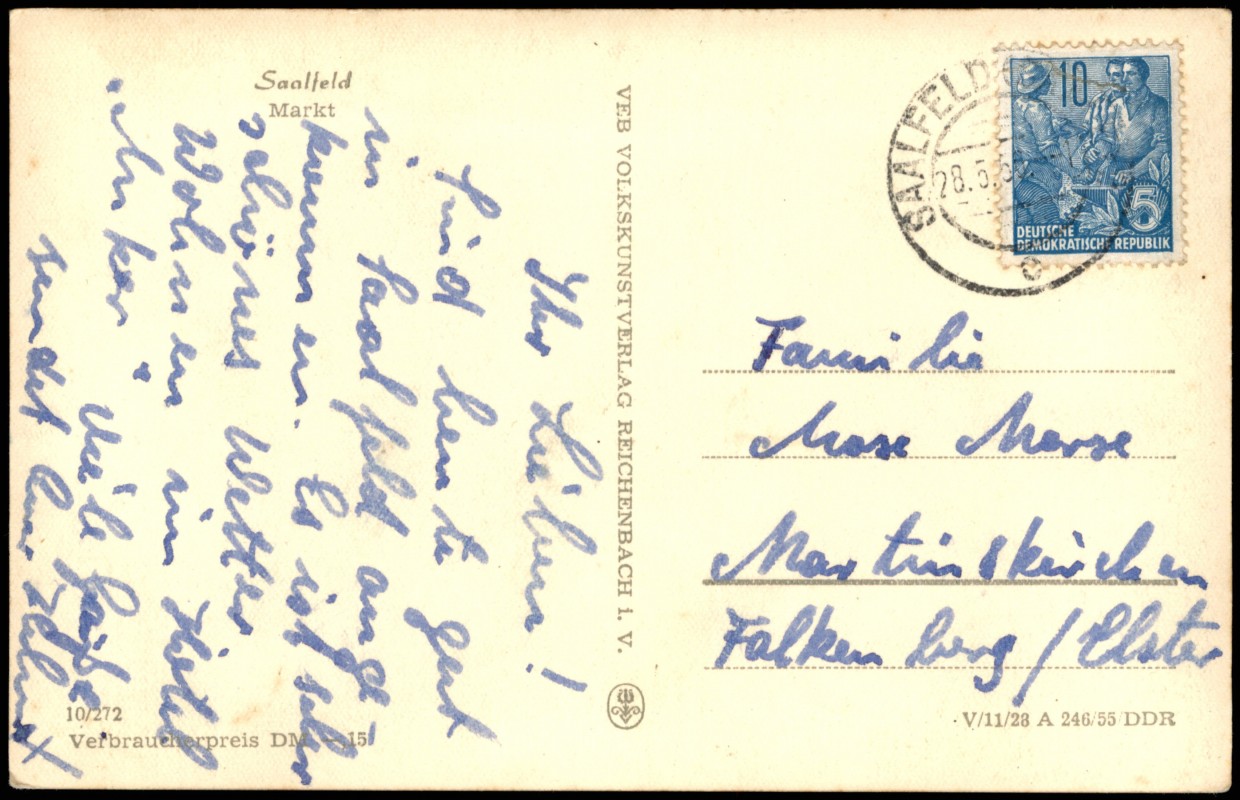 Saalfeld
Markt
Ihr Lieben!
Sind heute gut
in Saalfeld ange-
kommen. Es ist sehr
schönes Wetter
Wohnen im Hotel
Anker.
Viele Grüße
sendet Euch Helmut
10/272
Verbraucherpreis DM —.15
VEB VOLKSKUNSTVERLAG REICHENBACH i. V.
SAALFELD
28.5.
e
10
5
DEUTSCHE
DEMOKRATISCHE REPUBLIK
Familie
Marse
Martinskirchen
Falkenberg/Elster
V/11/28 A 246/55 DDR